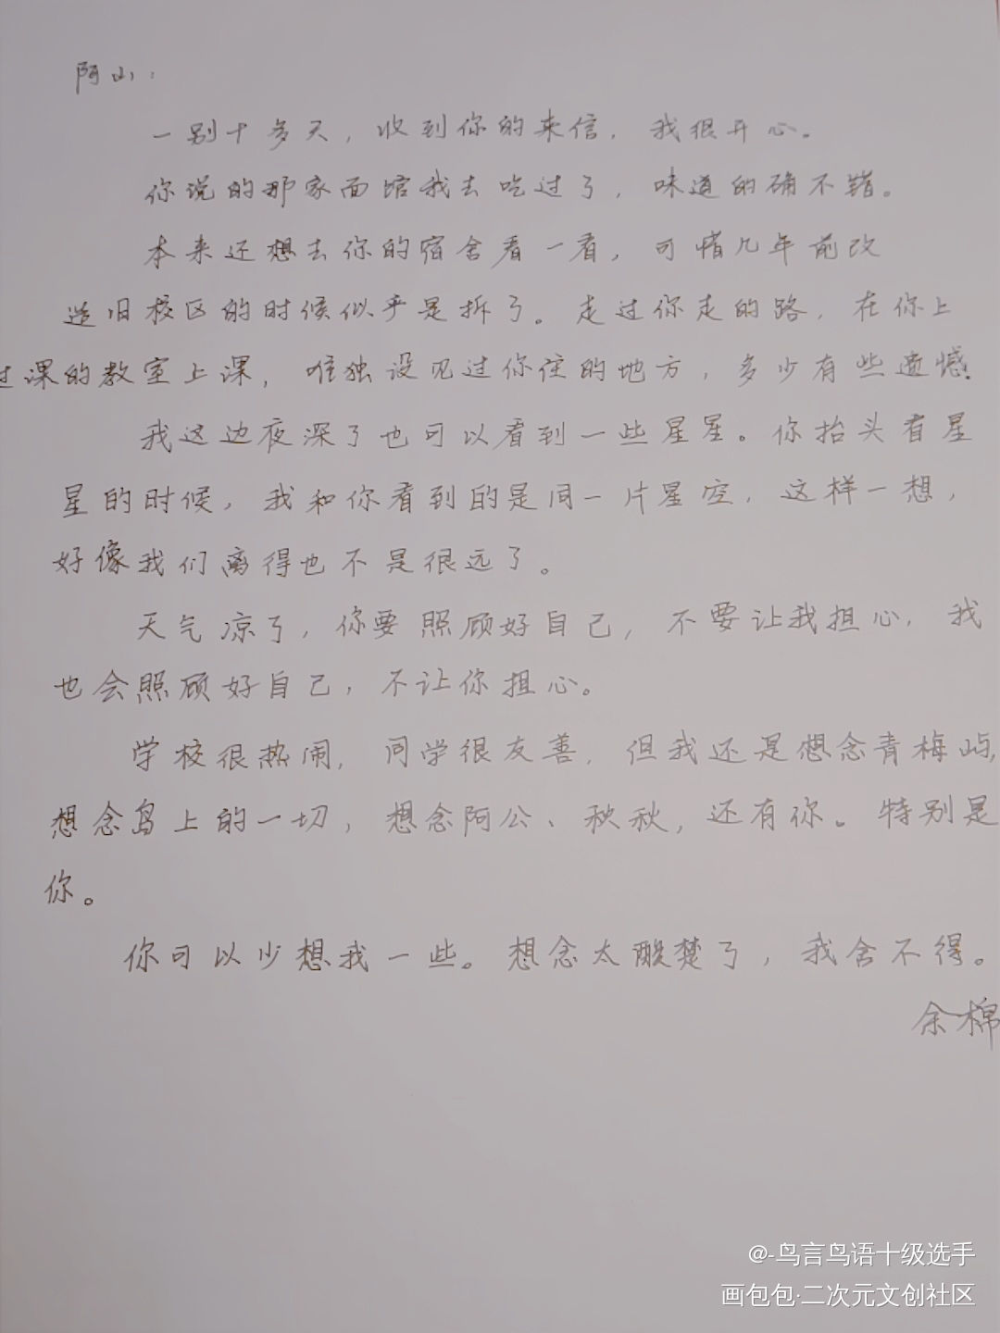 阿山：
一别十多天，收到你的来信，我很开心。
你说的那家面馆我去吃过了，味道的确不错。
本来还想去你的宿舍看一看，可惜几年前改
造旧校区的时候似乎是拆了。走过你走的路，在你上
过课的教室上课，唯独没见过你住的地方，多少有些遗憾。
我这边夜深了也可以看到一些星星。你抬头有星
星的时候，我和你看到的是同一片星空，这样一想，
好像我们离得也不是很远了。
天气凉了，你要照顾好自己，不要让我担心，我
也会照顾好自己，不让你担心。
学校很热闹，同学很友善，但我还是想念青梅屿，
想念岛上的一切，想念阿公、秋秋，还有你。特别是
你。
你可以少想我一些。想念太酸楚了，我舍不得。
余棉
@-鸟言鸟语十级选手
画包包·二次元文创社区